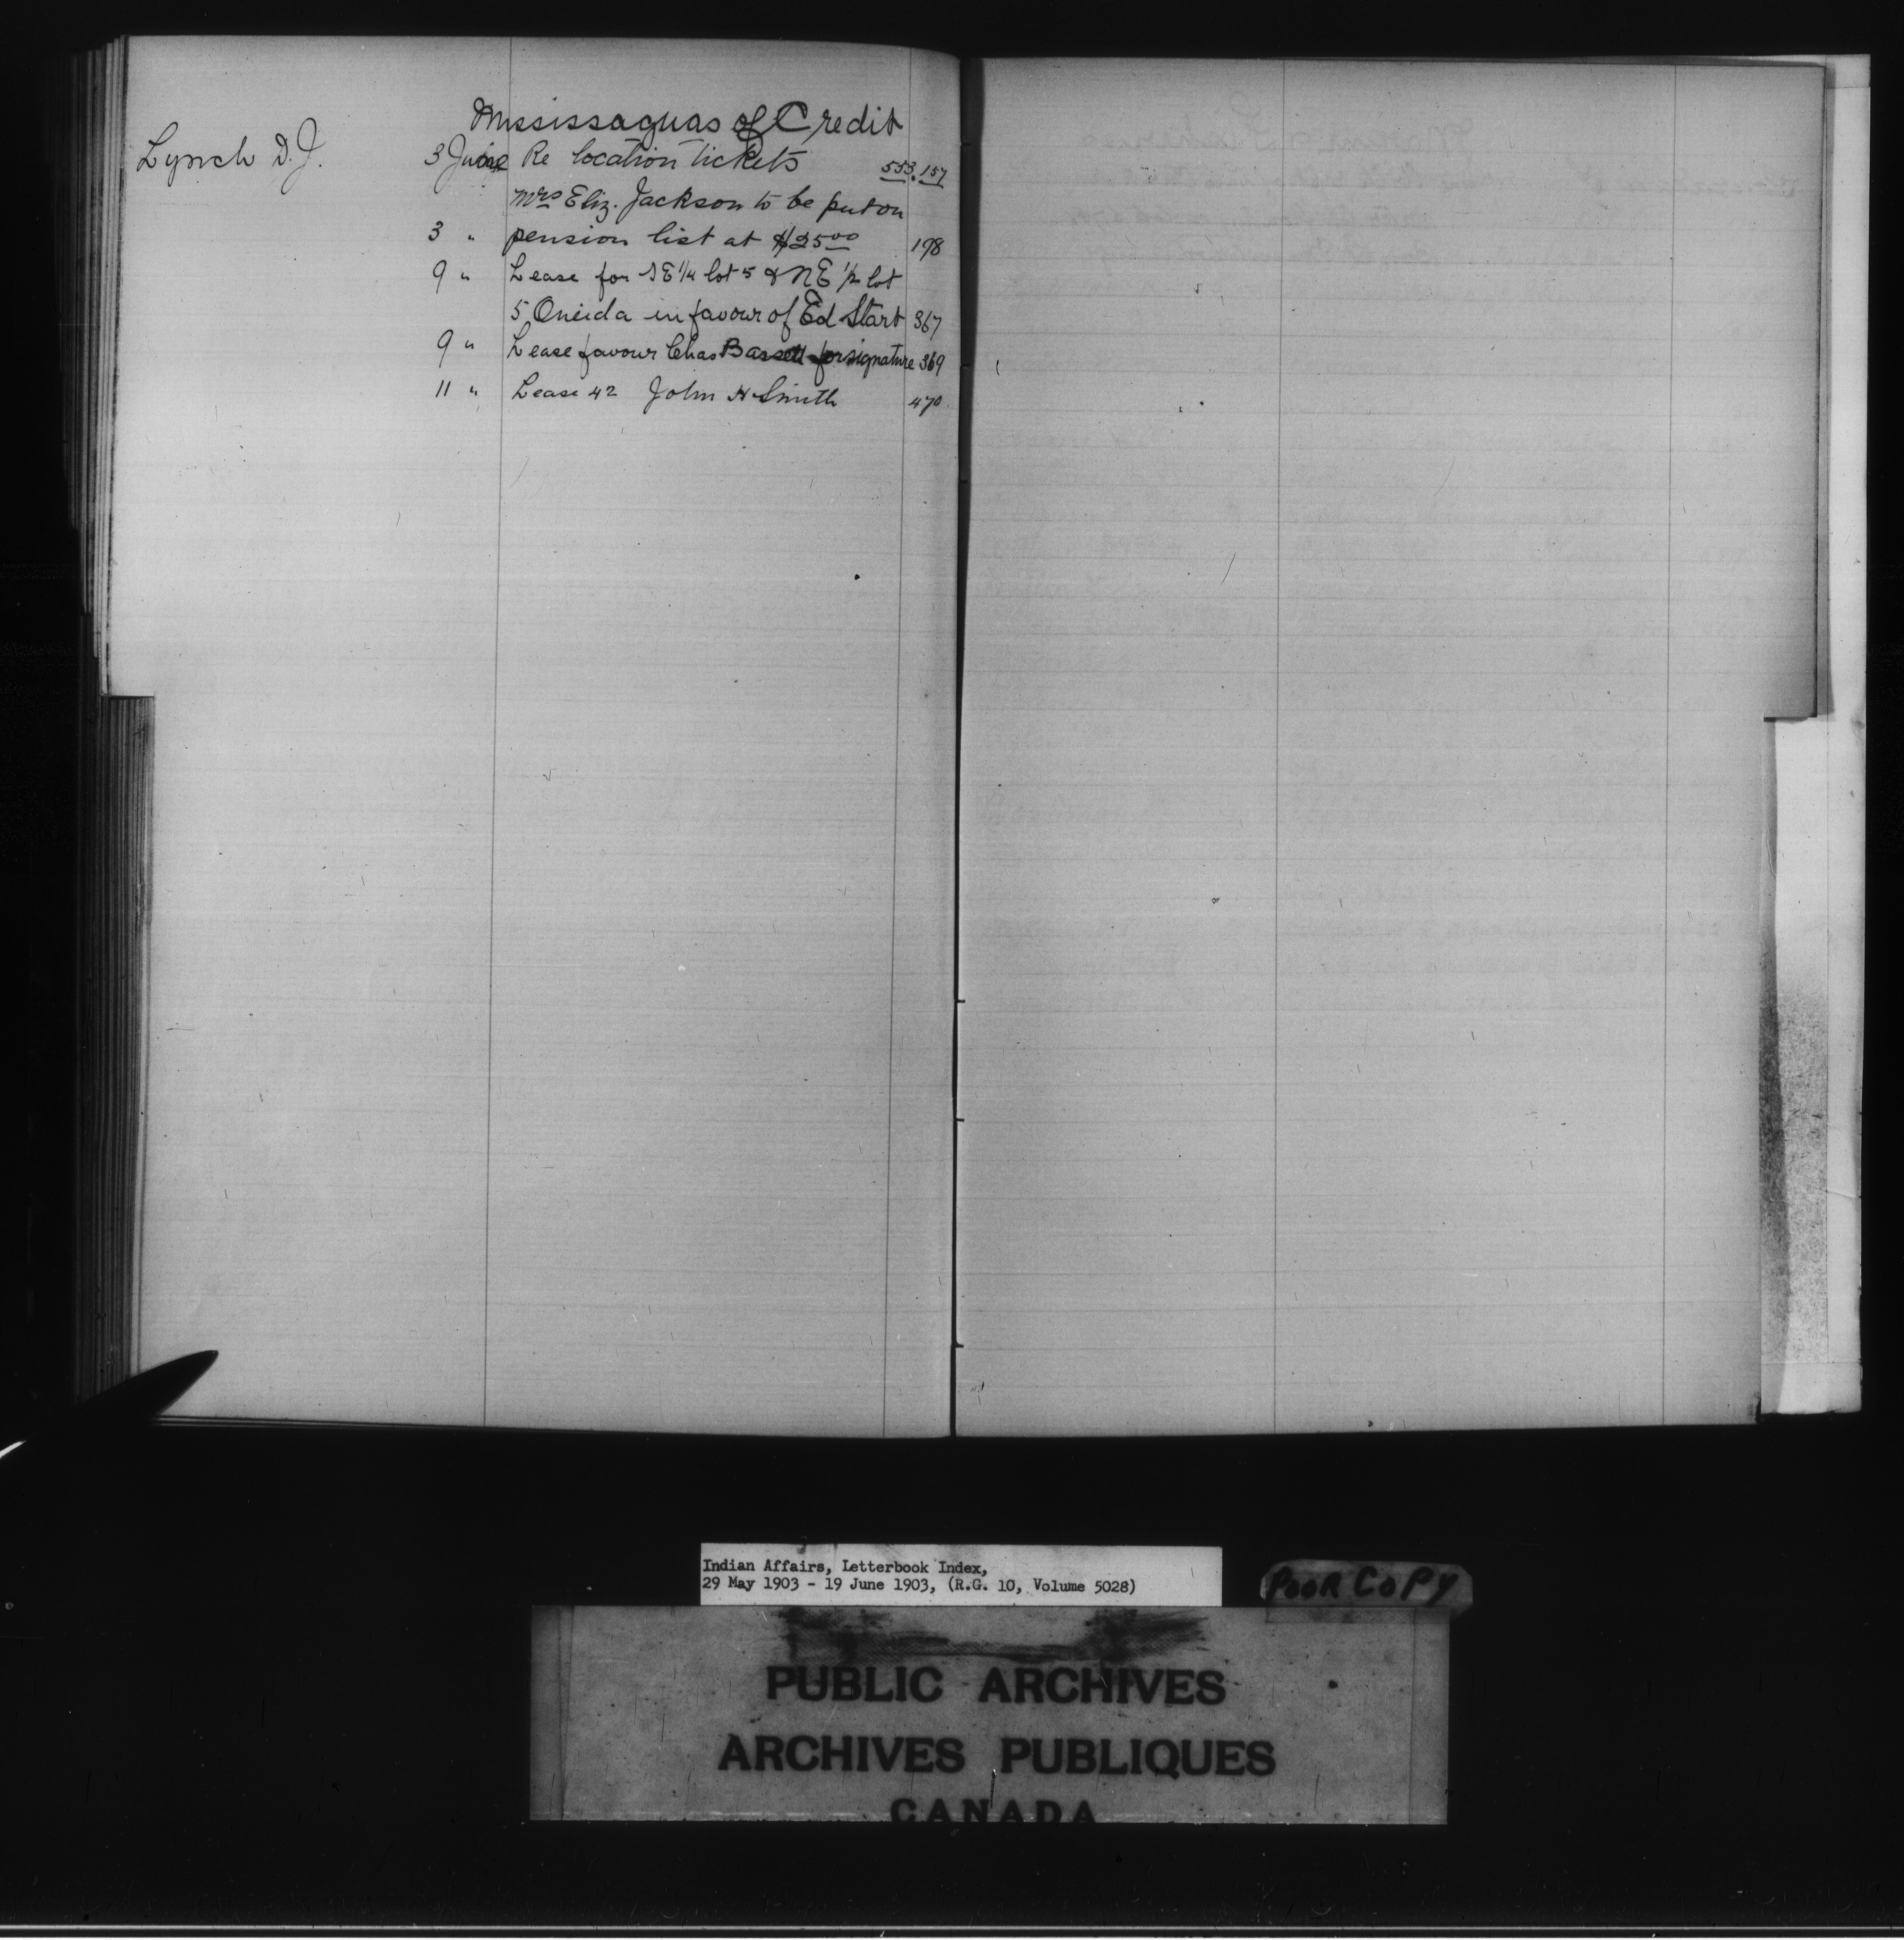 Mississaguas of Credit
Lynch D. J. 3 June Re location tickets 553.157
Mrs Eliz. Jackson to be put on
3 " pension list at $25 00 198
9 " Lease for SE 1/4 lot 5 & NE 1/2 lot
5 Oneida in favour of Ed Start 367
9 " Lease favour Chas Bassett for signature 369
11 " Lease 42 John H Smith 470
Indian Affairs, Letterbook Index,
29 May 1903 - 19 June 1903, (R.G. 10, Volume 5028)
POOR COPY
PUBLIC ARCHIVES
ARCHIVES PUBLIQUES
CANADA